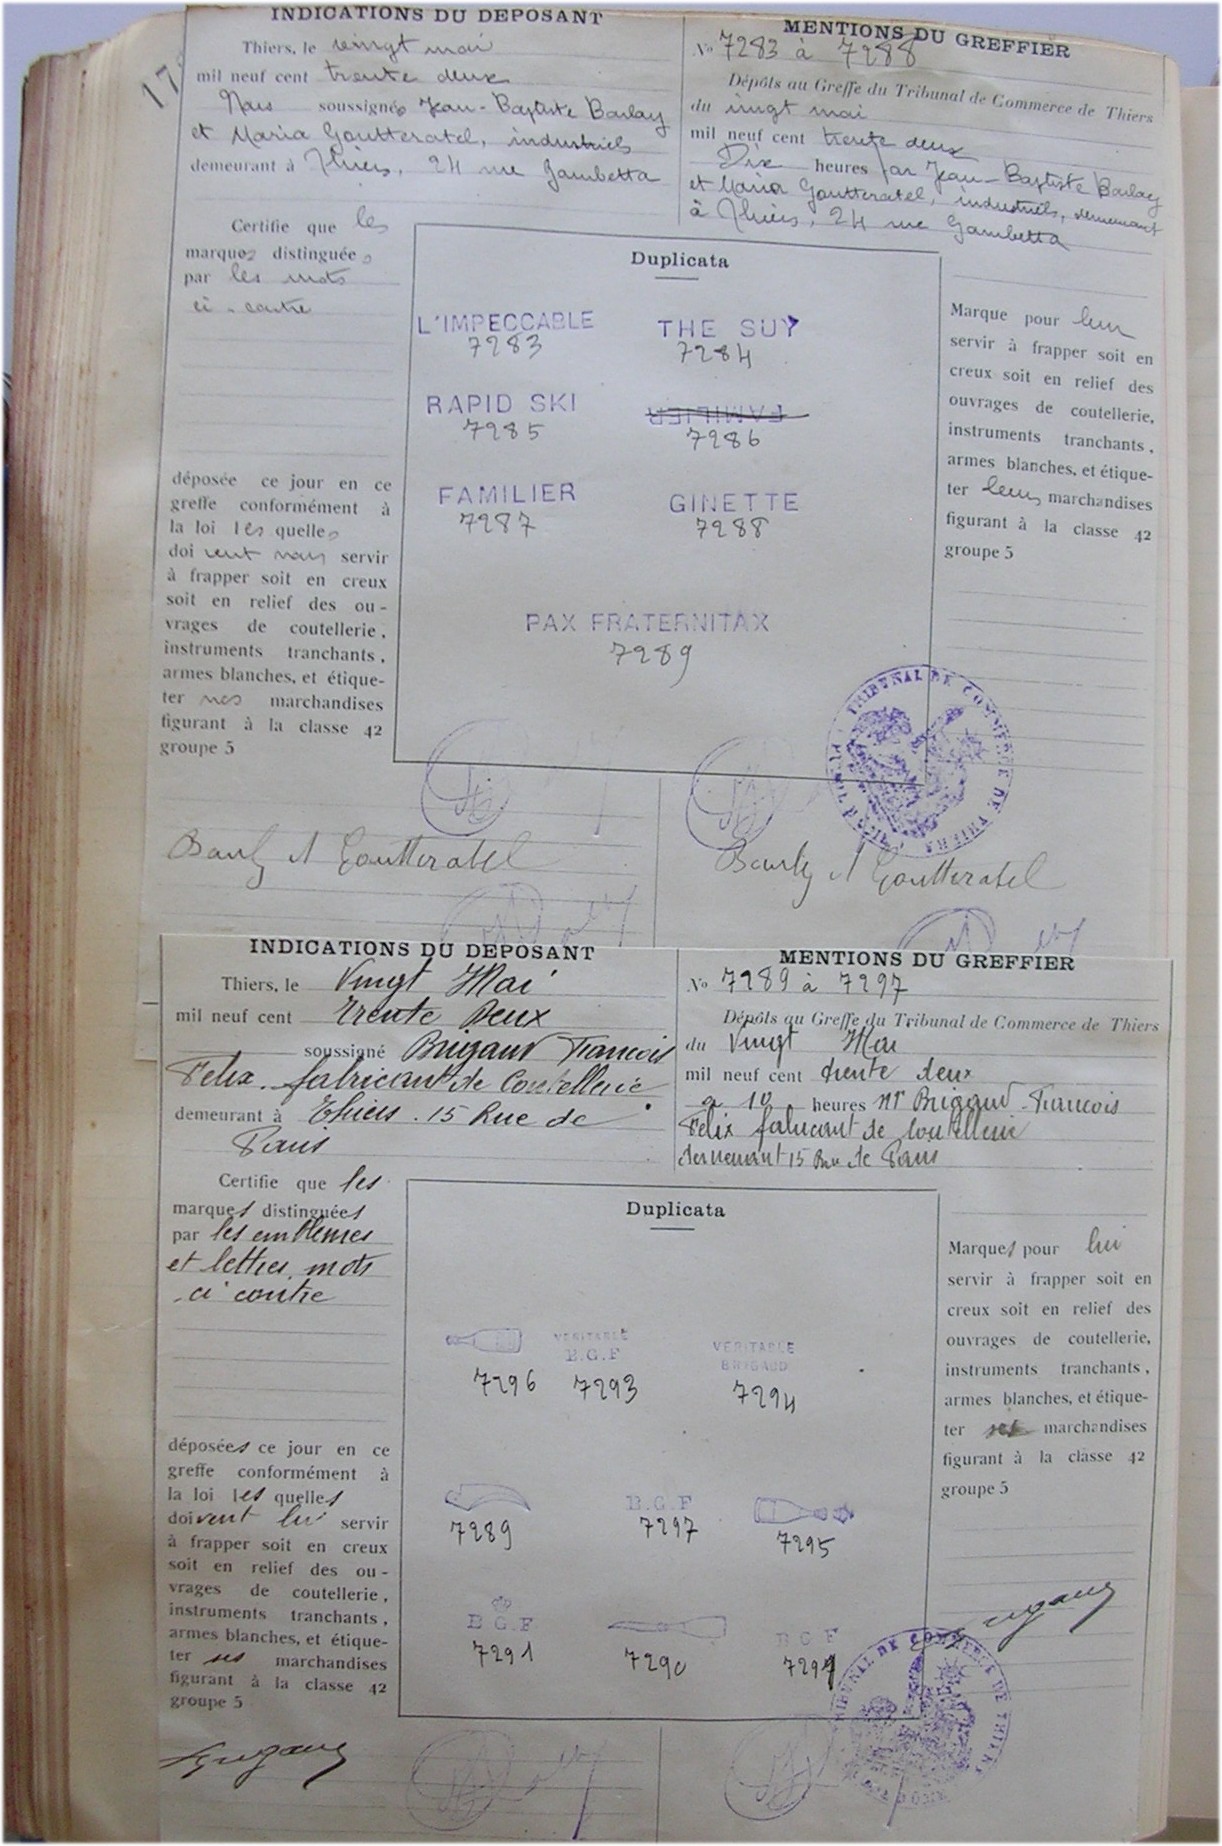 17
INDICATIONS DU DEPOSANT
Thiers, le vingt mai
mil neuf cent trente deux
Nous soussignés Jean-Baptiste Barlay
et Maria Goutteratel, industriels
demeurant à Thiers, 24 rue Gambetta
Certifie que les
marques distinguées
par les mots
ci-contre
déposée ce jour en ce
greffe conformément à
la loi les quelles
doivent nous servir
à frapper soit en creux
soit en relief des ou-
vrages de coutellerie,
instruments tranchants,
armes blanches, et étique-
ter nos marchandises
figurant à la classe 42
groupe 5
MENTIONS DU GREFFIER
No 7283 à 7288
Dépôts au Greffe du Tribunal de Commerce de Thiers
du vingt mai
mil neuf cent trente deux
Dix heures par Jean-Baptiste Barlay
et Maria Goutteratel, industriels, demeurant
à Thiers, 24 rue Gambetta
Duplicata
L'IMPECCABLE
7283
THE SUY
7284
RAPID SKI
7285
FAMILIER
7286
FAMILIER
7287
GINETTE
7288
PAX FRATERNITAX
7289
Marque pour leur
servir à frapper soit en
creux soit en relief des
ouvrages de coutellerie,
instruments tranchants,
armes blanches, et étique-
ter leurs marchandises
figurant à la classe 42
groupe 5
TRIBUNAL DE COMMERCE DE THIERS
Goutteratel
Goutteratel
INDICATIONS DU DEPOSANT
Thiers, le Vingt Mai
mil neuf cent trente Deux
soussigné Brigaud Francois
Felix. fabricant de Coutellerie
demeurant à Thiers. 15 Rue de
Paris
Certifie que les
marques distinguées
par les emblemes
et lettres, mots
ci contre
déposées ce jour en ce
greffe conformément à
la loi les quelles
doivent lui servir
à frapper soit en creux
soit en relief des ou-
vrages de coutellerie,
instruments tranchants,
armes blanches, et étique-
ter ses marchandises
figurant à la classe 42
groupe 5
MENTIONS DU GREFFIER
No 7289 à 7297
Dépôts au Greffe du Tribunal de Commerce de Thiers
du Vingt Mai
mil neuf cent trente deux
a 10 heures Mr Brigaud-Francois
Felix fabricant de Coutellerie
demeurant 15 Rue de Paris
Duplicata
7296
VERITABLE
B.G.F
7293
VERITABLE
BRIGAUD
7294
7289
B.G.F
7297
7295
B G F
7291
7290
B G F
Marques pour lui
servir à frapper soit en
creux soit en relief des
ouvrages de coutellerie,
instruments tranchants,
armes blanches, et étique-
ter ses marchandises
figurant à la classe 42
groupe 5
TRIBUNAL DE COMMERCE DE THIERS